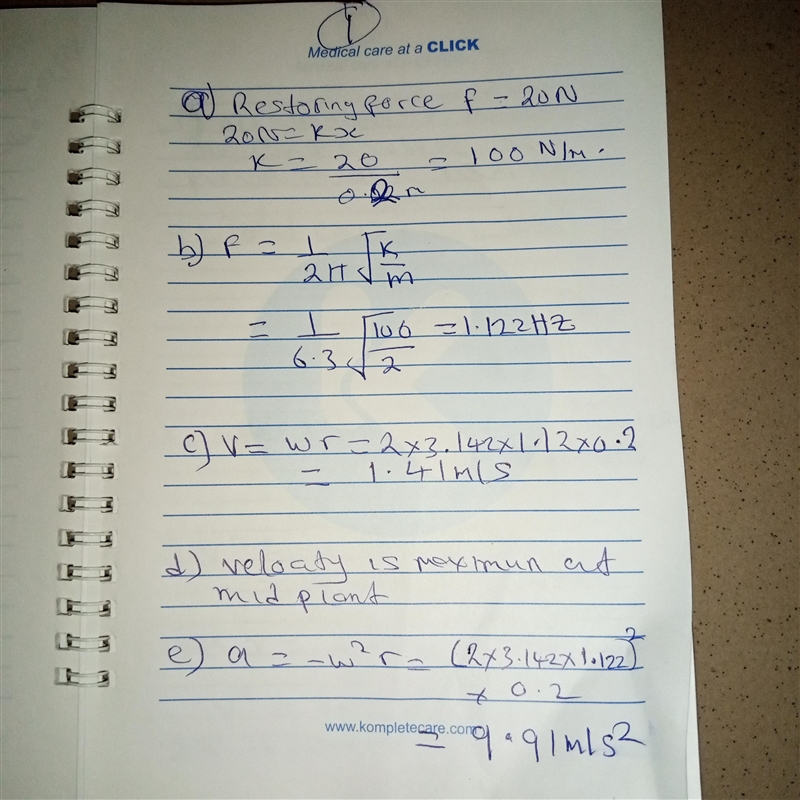 1
Medical care at a CLICK
a) Restoring force f = 20N
20N = Kx
K = 20/0.2m = 100 N/m.
b) F = 1/2π √K/m
= 1/6.3 √100/2 = 1.122HZ
c) V = wr = 2x3.142x1.12x0.2
= 1.41m/s
d) velocity is maximun at
mid point
e) a = -w²r = (2x3.142x1.122)²
x 0.2
www.kompletecare.com
= 9.91m/s²